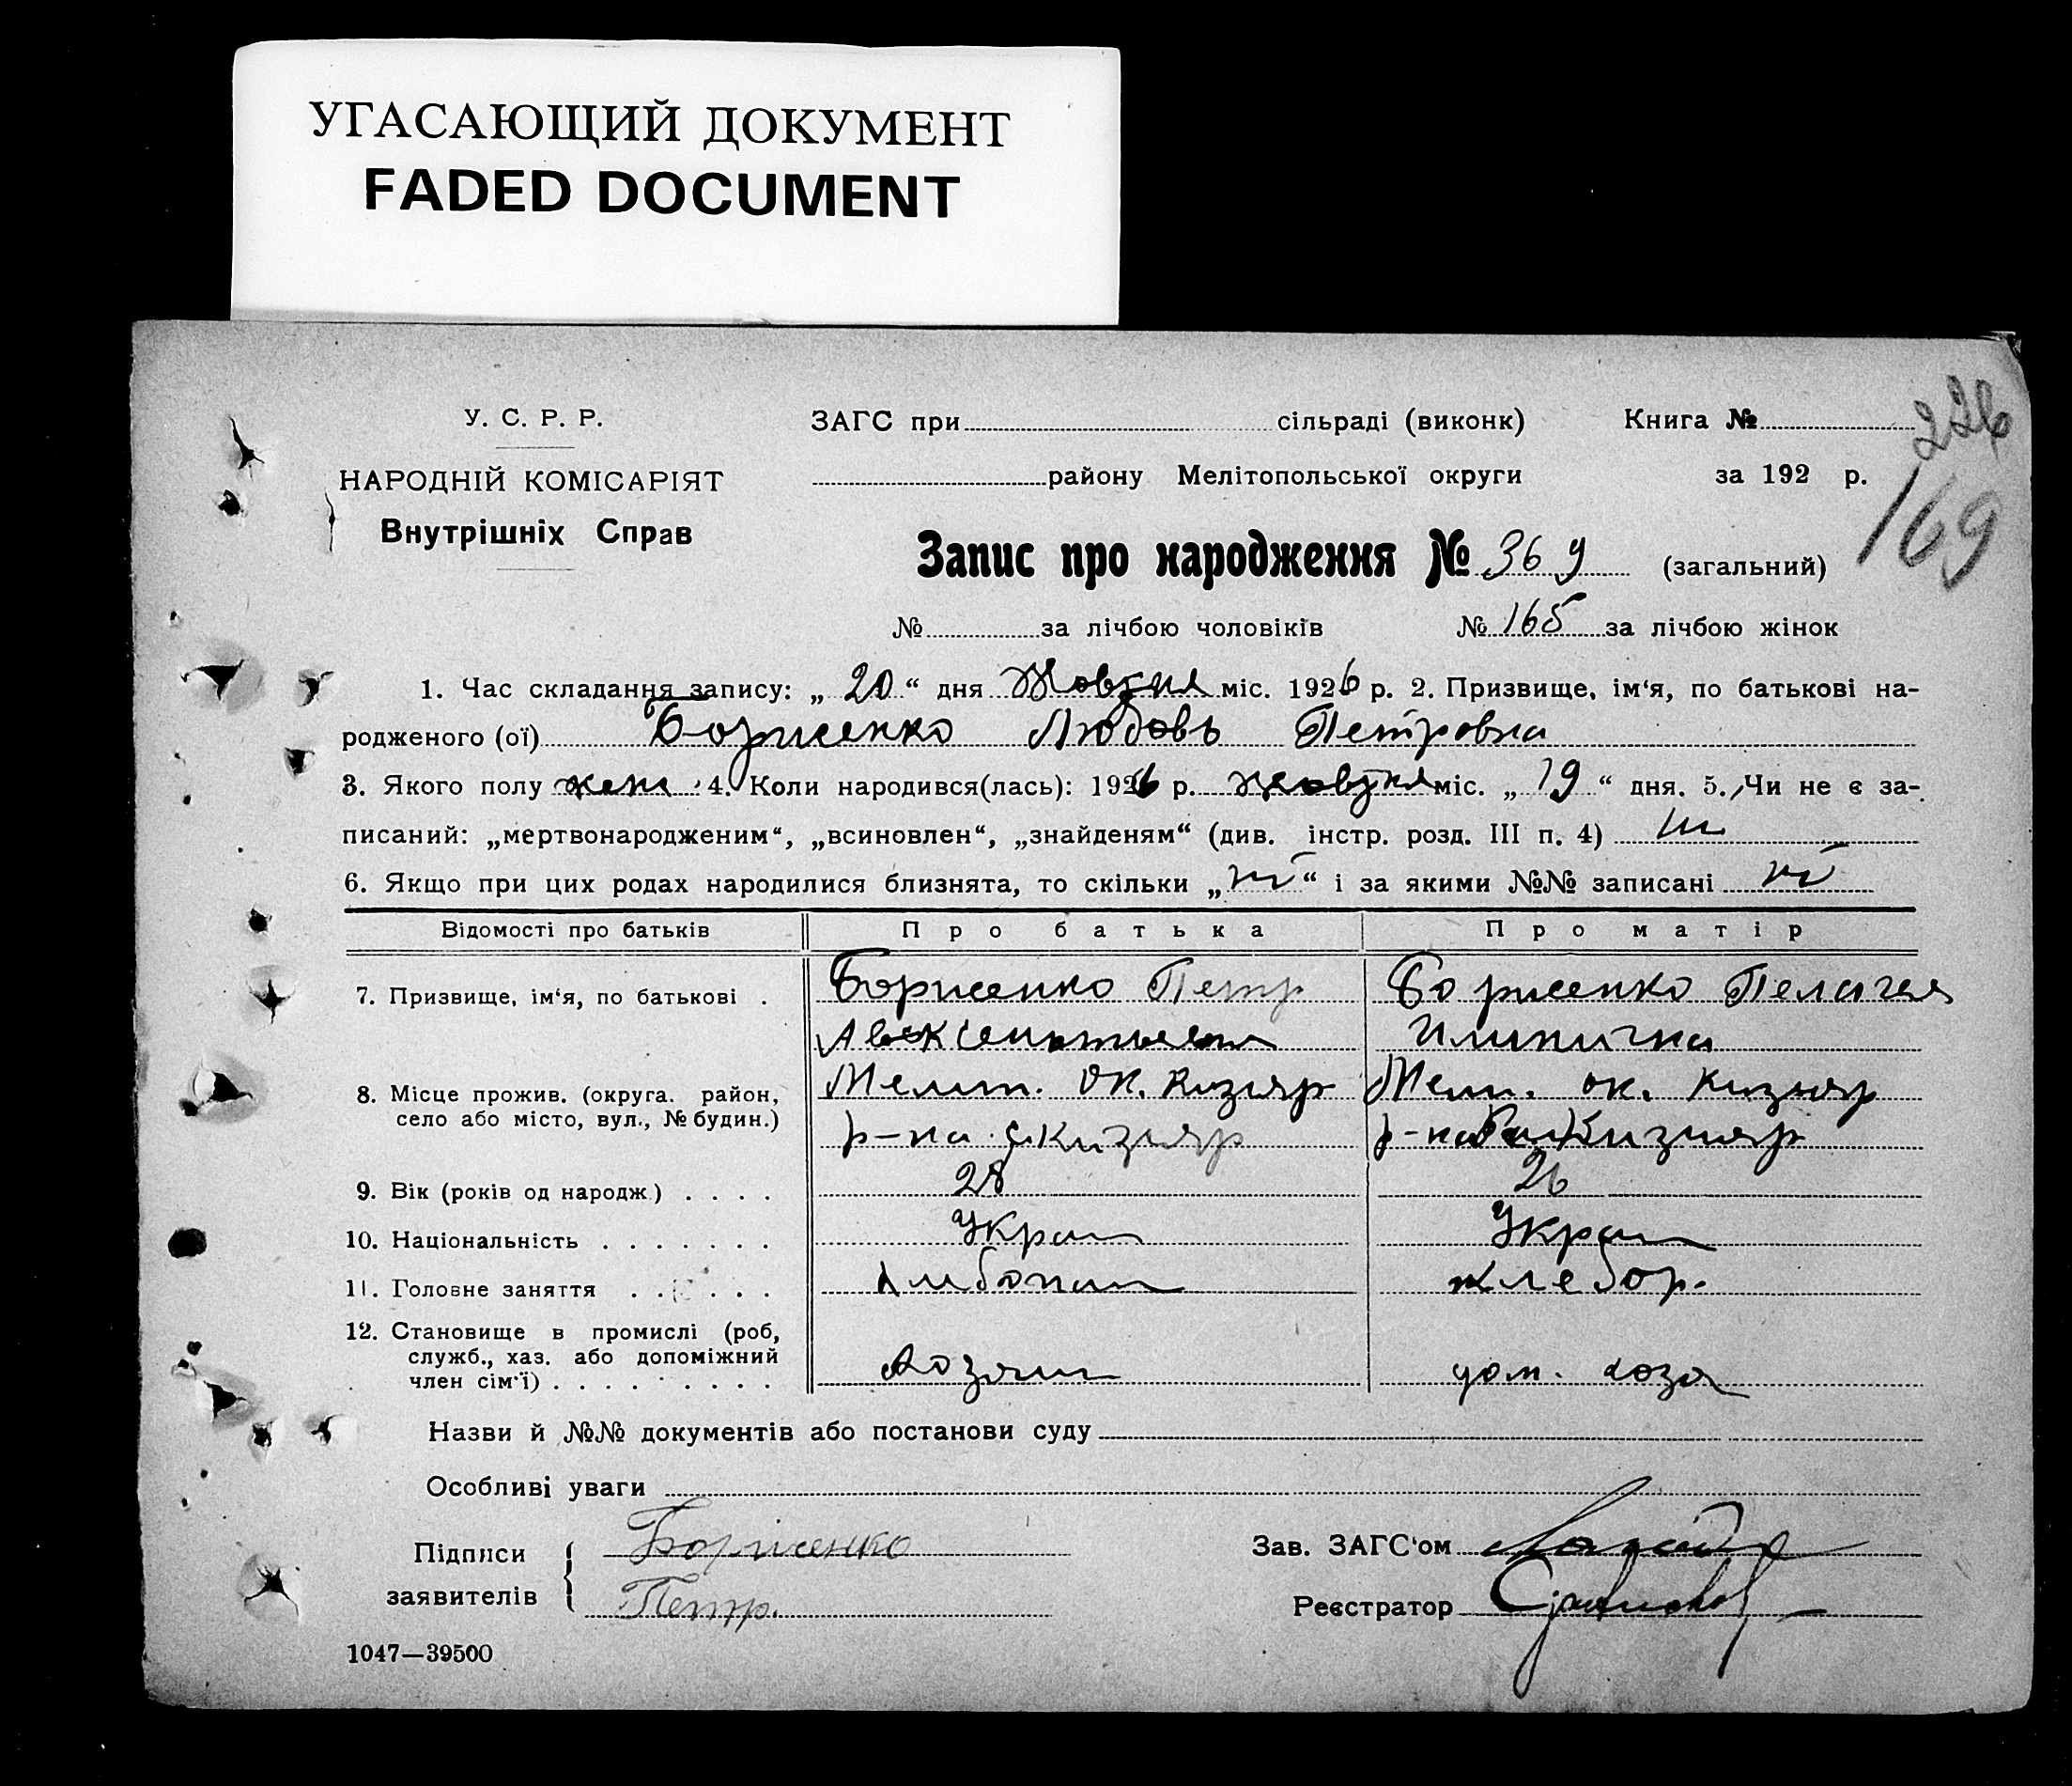 УГАСАЮЩИЙ ДОКУМЕНТ
FADED DOCUMENT
У. С. Р. Р.
НАРОДНІЙ КОМІСАРІЯТ
Внутрішніх Справ
ЗАГС при сільраді (виконк) Книга №
226
району Мелітопольської округи за 192 р.
169
Запис про народження № 369 (загальний)
№ за лічбою чоловіків № 165 за лічбою жінок
1. Час складання запису: „ 20 “ дня Жовтня міс. 1926 р. 2. Призвище, ім‘я, по батькові на-
родженого (ої) Борисенко Любовь Петровна
3. Якого полу жен 4. Коли народився(лась): 1926 р. жовтня міс. „ 19 “ дня. 5. Чи не є за-
писаний: „мертвонародженим“, „всиновлен“, „знайденям“ (див. інстр. розд. III п. 4) ні
6. Якщо при цих родах народилися близнята, то скільки „ ні “ і за якими №№ записані ні
Відомості про батьків Про батька Про матір
7. Призвище, ім‘я, по батькові . Борисенко Петр Борисенко Пелагея
8. Місце прожив. (округа. район, Мелит. ок. Кизияр Мели. ок. Кизияр
село або місто, вул., № будин.) р-на с. Кизияр р-на Кизияр
9. Вік (років од народж.) . . . . 28 26
10. Національність . . . . . . . Укра Укра
11. Головне заняття . . . . . . хлебор.
12. Становище в промислі (роб,
служб., хаз. або допоміжний Хозяин дом. хозя
член сім‘ї) . . . . . . . . .
Назви й №№ документів або постанови суду
Особливі уваги
Підписи Борисенко Зав. ЗАГС‘ом
заявителів Петр. Реєстратор
1047—39500